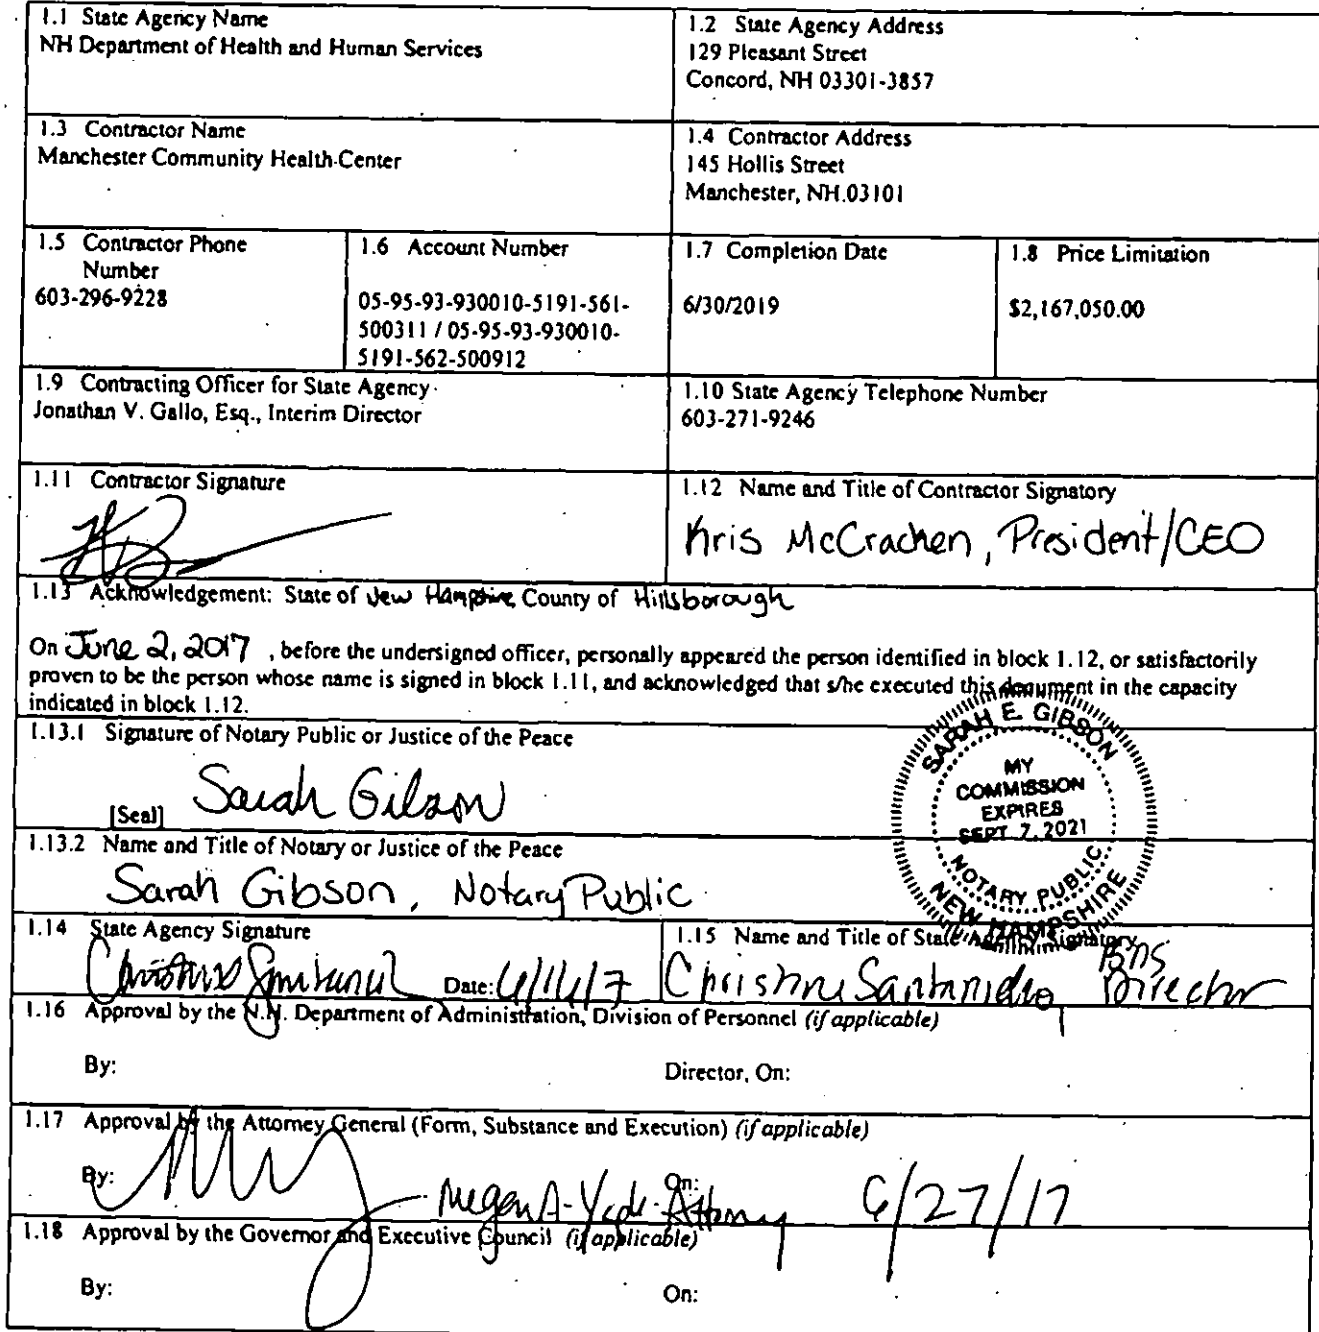 1.1 State Agency Name
NH Department of Health and Human Services
1.2 State Agency Address
129 Pleasant Street
Concord, NH 03301-3857
1.3 Contractor Name
Manchester Community Health Center
1.4 Contractor Address
145 Hollis Street
Manchester, NH 03101
1.5 Contractor Phone
Number
603-296-9228
1.6 Account Number
05-95-93-930010-5191-561-
500311 / 05-95-93-930010-
5191-562-500912
1.7 Completion Date
6/30/2019
1.8 Price Limitation
$2,167,050.00
1.9 Contracting Officer for State Agency
Jonathan V. Gallo, Esq., Interim Director
1.10 State Agency Telephone Number
603-271-9246
1.11 Contractor Signature
1.12 Name and Title of Contractor Signatory
Kris McCracken, President/CEO
1.13 Acknowledgement: State of New Hampshire County of Hillsborough
On June 2, 2017 , before the undersigned officer, personally appeared the person identified in block 1.12, or satisfactorily
proven to be the person whose name is signed in block 1.11, and acknowledged that s/he executed this document in the capacity
indicated in block 1.12.
1.13.1 Signature of Notary Public or Justice of the Peace
Sarah Gibson
[Seal]
SARAH E. GIBSON
MY
COMMISSION
EXPIRES
SEPT. 7, 2021
NOTARY PUBLIC
NEW HAMPSHIRE
1.13.2 Name and Title of Notary or Justice of the Peace
Sarah Gibson, Notary Public
1.14 State Agency Signature
Date:
1.15 Name and Title of State Agency Signatory
Christine Santaniello, Director
1.16 Approval by the N.H. Department of Administration, Division of Personnel (if applicable)
By:
Director, On:
1.17 Approval by the Attorney General (Form, Substance and Execution) (if applicable)
By:
Attorney
On:
6/27/17
1.18 Approval by the Governor and Executive Council (if applicable)
By:
On: